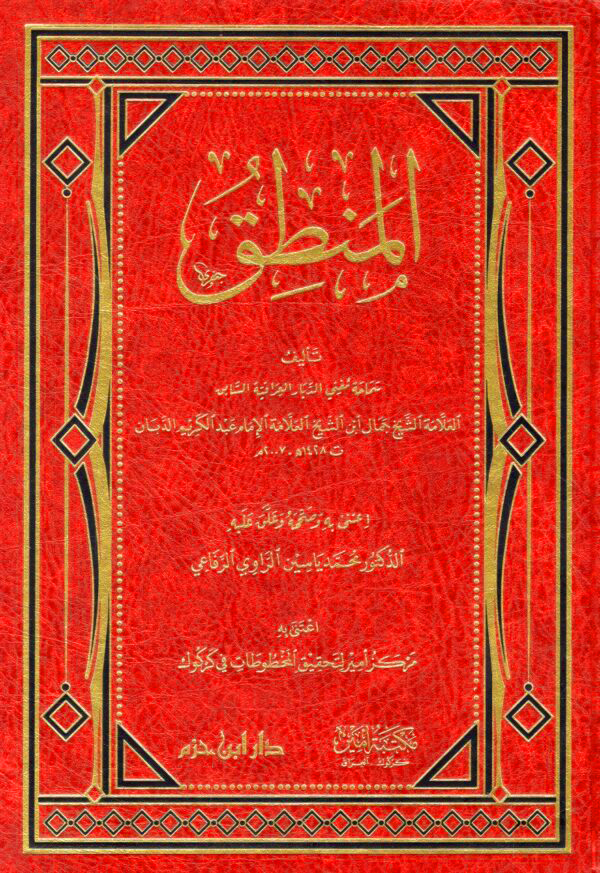 المَنطِقُ
تأليف
سماحة مفتي الديار العراقية السابق
العلامة الشيخ جمال ابن الشيخ العلامة الإمام عبد الكريم الدبان
ت ١٤٢٨هـ - ٢٠٠٧م
اعتنى به وصححه وعلق عليه
الدكتور محمد ياسين الراوي الرفاعي
اعتنى به
مركز أمير لتحقيق المخطوطات في كركوك
مكتبة أمير
كركوك - العراق
دار ابن حزم